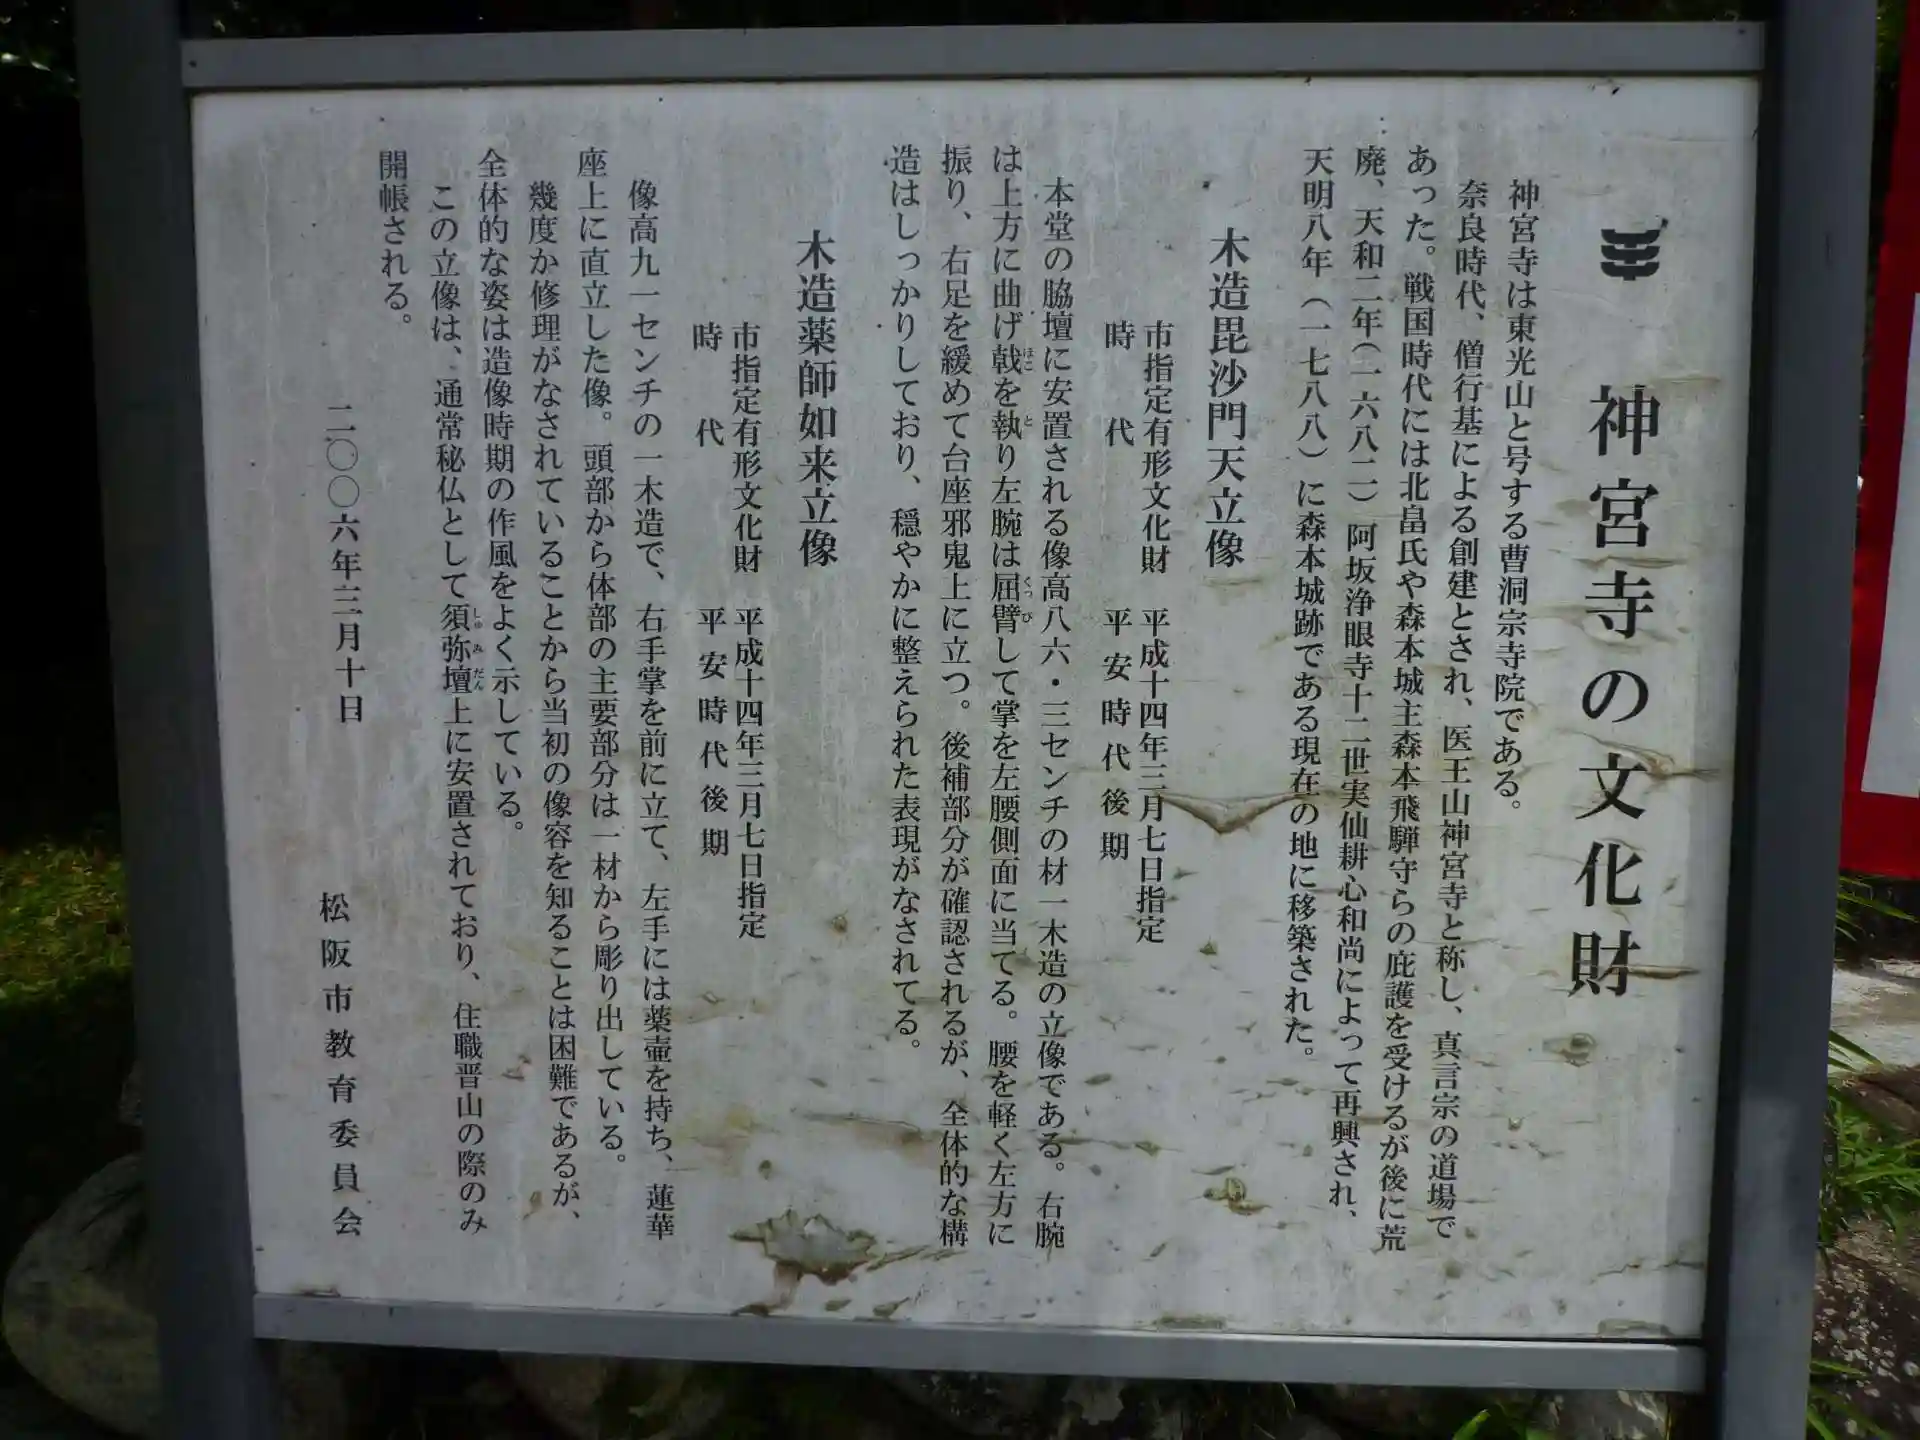 神宮寺の文化財
神宮寺は東光山と号する曹洞宗寺院である。
奈良時代、僧行基による創建とされ、医王山神宮寺と称し、真言宗の道場で
あった。戦国時代には北畠氏や森本城主森本飛騨守らの庇護を受けるが後に荒
廃、天和二年(一六八二)阿坂浄眼寺十二世実仙耕心和尚によって再興され、
天明八年(一七八八)に森本城跡である現在の地に移築された。
木造毘沙門天立像
市指定有形文化財 平成十四年三月七日指定
時代 平安時代後期
本堂の脇壇に安置される像高八六・三センチの材一木造の立像である。右腕
は上方に曲げ戟を執り左腕は屈臂して掌を左腰側面に当てる。腰を軽く左方に
振り、右足を緩めて台座邪鬼上に立つ。後補部分が確認されるが、全体的な構
造はしっかりしており、穏やかに整えられた表現がなされてる。
木造薬師如来立像
市指定有形文化財 平成十四年三月七日指定
時代 平安時代後期
像高九一センチの一木造で、右手掌を前に立て、左手には薬壷を持ち、蓮華
座上に直立した像。頭部から体部の主要部分は一材から彫り出している。
幾度か修理がなされていることから当初の像容を知ることは困難であるが、
全体的な姿は造像時期の作風をよく示している。
この立像は、通常秘仏として須弥壇上に安置されており、住職晋山の際のみ
開帳される。
二〇〇六年三月十日
松阪市教育委員会